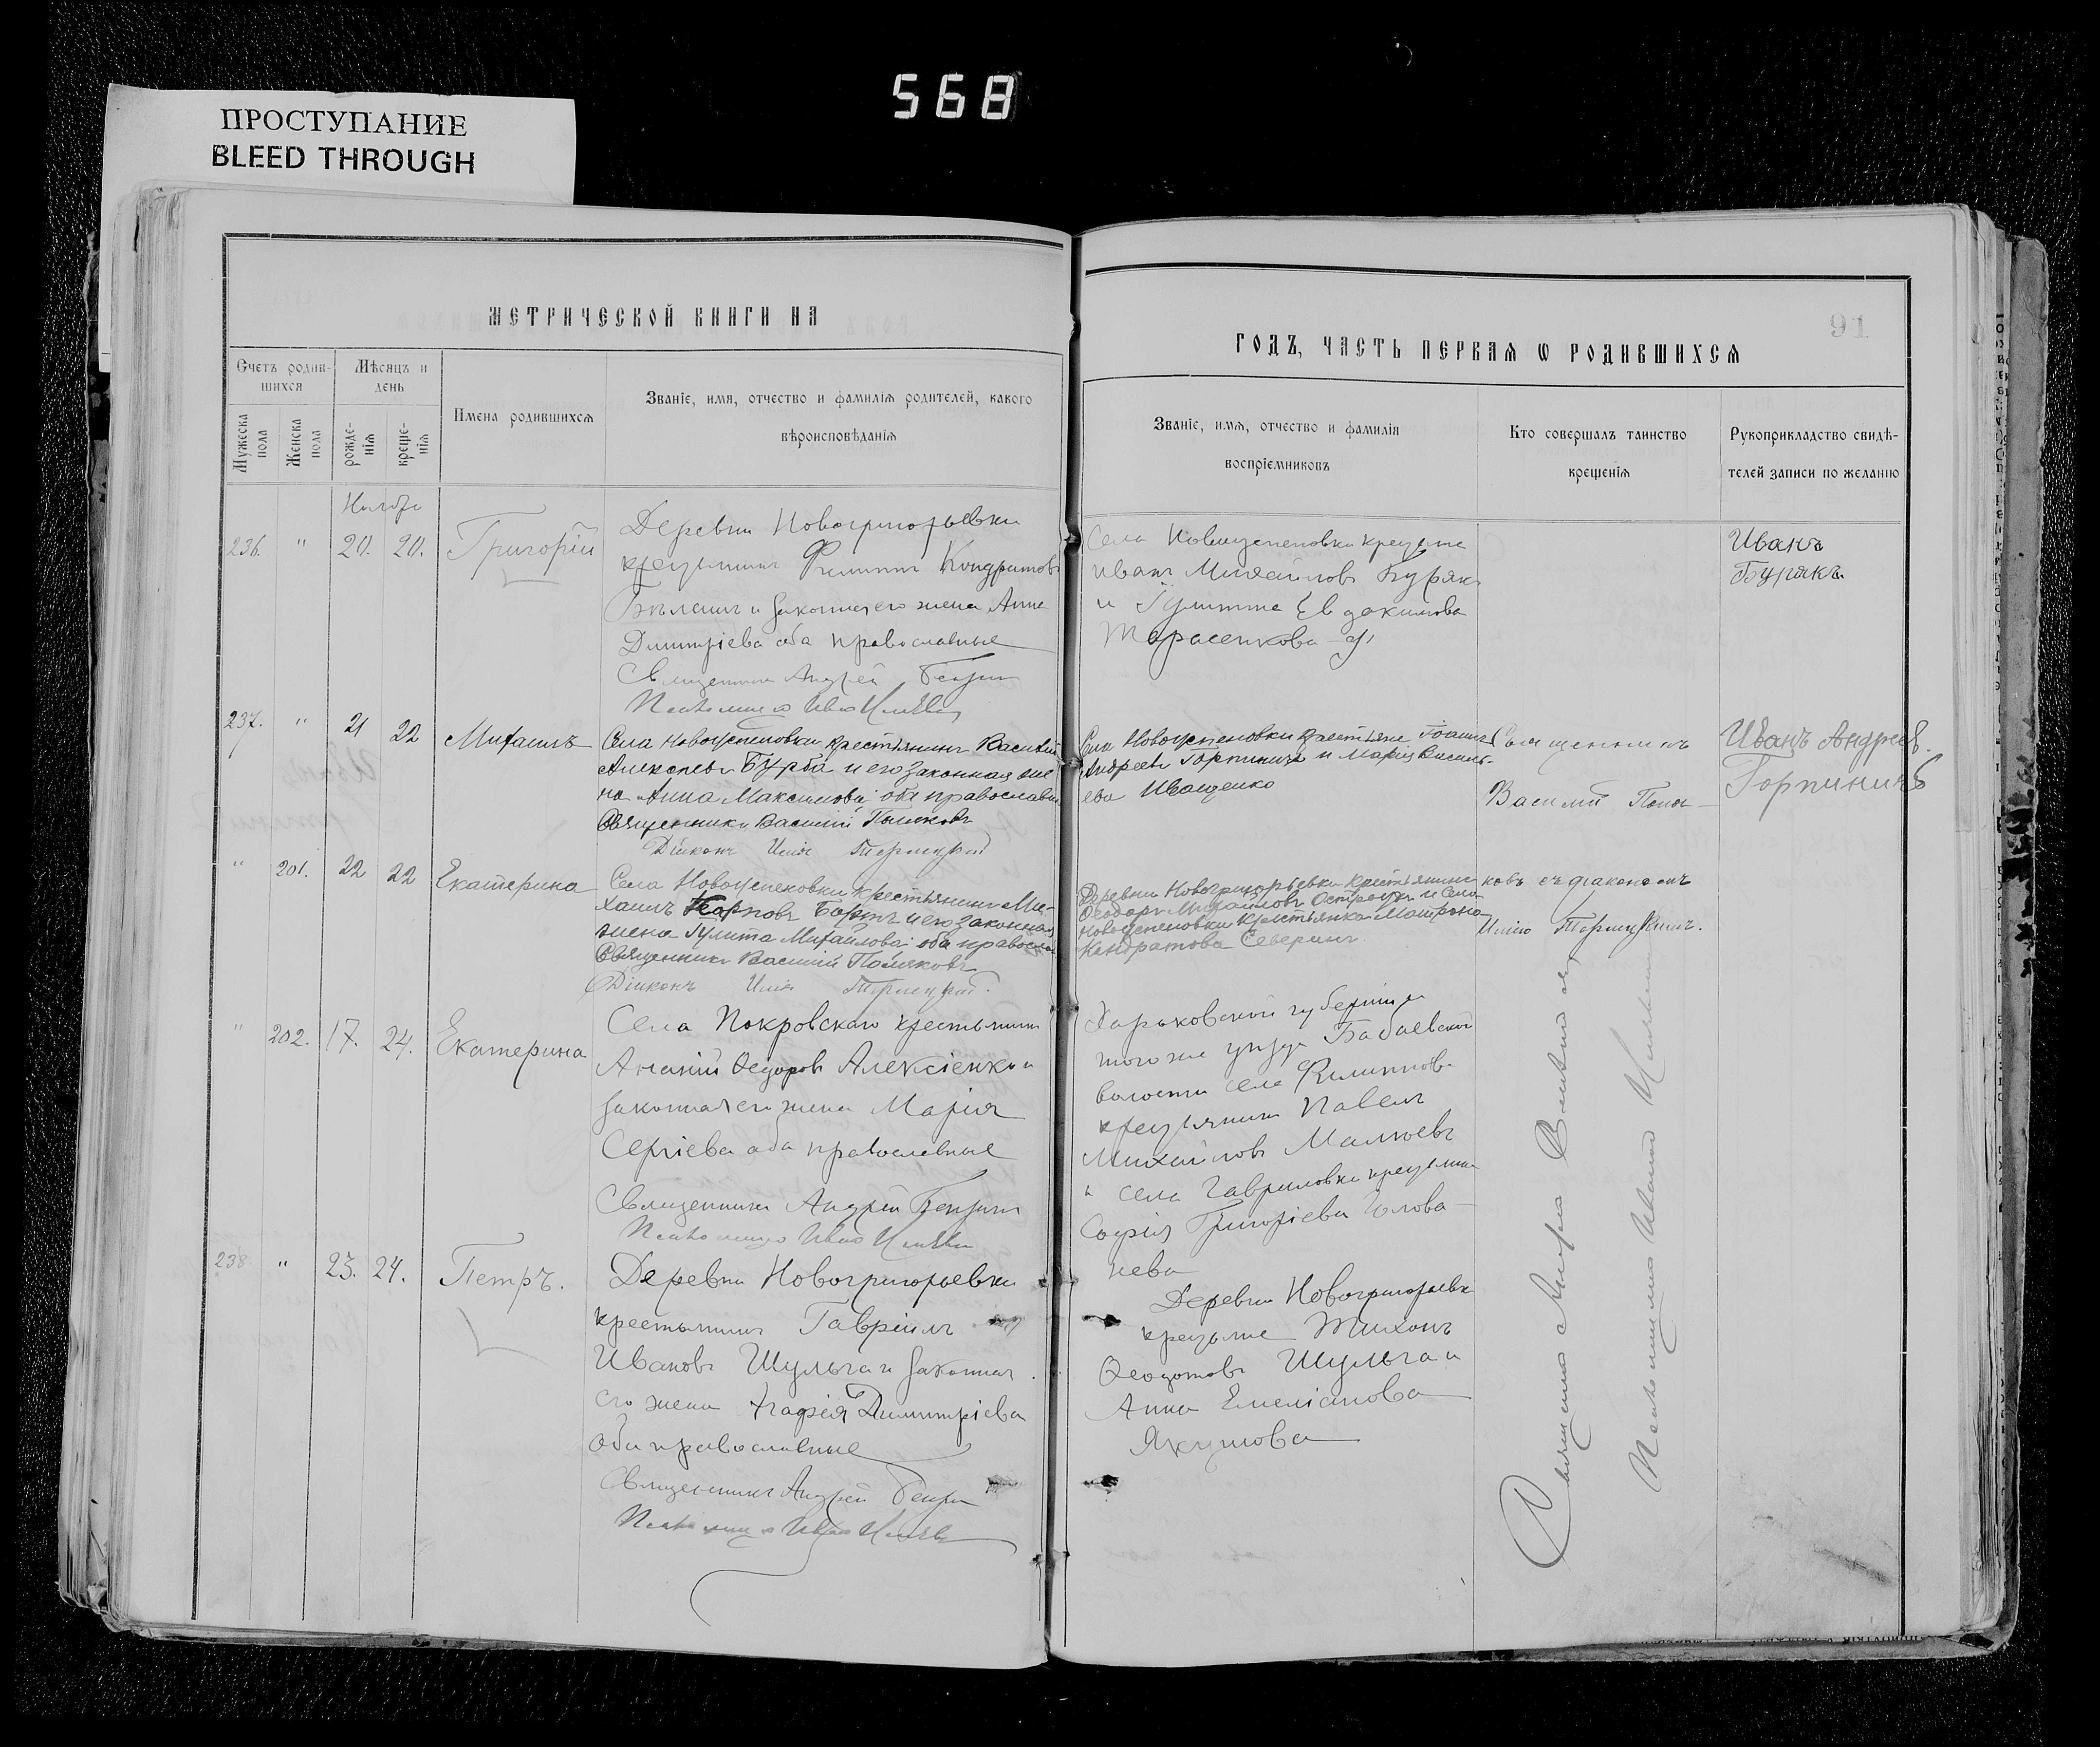 568
ПРОСТУПАНИЕ
BLEED THROUGH
МЕТРИЧЕСКОЙ КНИГИ НА
Счетъ родив-
шихся
Мѣсяцъ и
день
Мужеска
пола
Женска
пола
рожде-
нія
креще-
нія
Имена родившихся
Званіе, имя, отчество и фамилія родителей, какого
вѣроисповѣданія
Ноябрь
236. " 20. 20. Григорій
Деревни Новогригорьевки
крестьянинъ Филиппъ Кондратовъ
и законная его жена Анна
Димитріева оба православные
Священникъ Андрей
Псаломщикъ Иванъ
237. " 21 22 Михаилъ
Села Новоуспеновки крестьянинъ Василій
Алексѣевъ Бурба и его законная же-
на Анна Максимова оба православны
Священникъ Василій Поляковъ
Діаконъ Илія
" 201. 22 22 Екатерина
Села Новоуспеновки крестьянинъ Ми-
хаилъ Карповъ и его законная
жена Гулита Михайлова оба православ
Священникъ Василій Поляковъ
Діаконъ Илія
" 202. 17. 24. Екатерина
Села Покровскаго крестьянинъ
Ананій Ѳедоровъ Алексіенко и
законная его жена Марія
Сергіева оба православные
Священникъ Андрей
Псаломщикъ Иванъ
238 " 23. 24. Петръ.
Деревни Новогригорьевки
крестьянинъ Гавріилъ
Ивановъ Шульга и законная
его жена Агафія Димитріева
оба православные
Священникъ Андрей
Псаломщикъ Иванъ
91
ГОДЪ, ЧАСТЬ ПЕРВАЯ Ѡ РОДИВШИХСЯ
Званіе, имя, отчество и фамилія
воспріемниковъ
Кто совершалъ таинство
крещенія
Рукоприкладство свидѣ-
телей записи по желанію
Села Новоуспеновки крестьяне
Иванъ Михайловъ Бурякъ
и Гулитта Евдокимова
Тарасенкова
Иванъ
Бурякъ.
Села Новоуспеновки крестьяне Іоаннъ
Андреевъ Горпиничъ и Марія Василь-
ева Иващенко
Священникъ
Василій Поля-
Иванъ Андреев.
Горпиничъ
Деревни Новогригорьевки крестьянинъ
Ѳеодоръ Михайловъ и села
Новоуспеновки крестьянка Матрона
Кондратова Северинъ
ковъ съ діакономъ
Иліею
Харьковской губерніи и
того же уѣзда Бабаевской
волости села Филиппов.
крестьянинъ Павелъ
Михайловъ
и села Гавриловки крестьянка
Софія Григоріева Голова-
нева
Деревни Новогригорьевки
крестьяне Тихонъ
Ѳеодотовъ Шульга и
Анна Емеліанова
Якунова
Священникъ Андрей
Псаломщикъ Иванъ